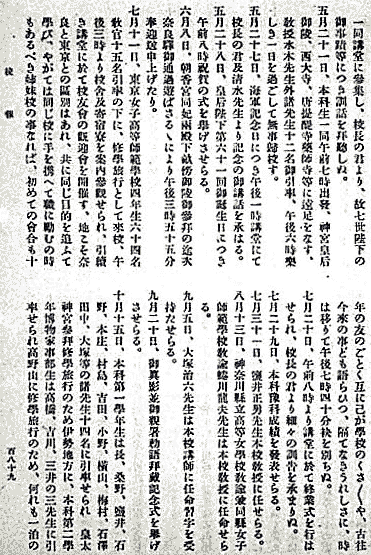 校報
一同講堂に參集し、校長の君より、故七世陛下の
御事蹟等につき訓話を拜聽しぬ。
五月二十一日、本科生一同午前七時出發、神宮皇后
御陵、西大寺、唐提醍寺藥師寺等に遠足をなす、
教授水木先生外諸先生十二名御引率、午後六時樂
しき一日を過ごして無事歸校す。
五月二十七日、海軍記念日につき午後一時講堂にて
校長の君及清水先生より記念の御講話を承はる。
五月二十八日、皇后陛下第六十一回御誕生日につき
午前八時祝賀の式を擧げさせらる。
六月八日、朝香宮同妃兩殿下畝傍御陵御參拜の途次
奈良驛御通過遊ばさるゝにより午後三時五十五分
奉迎送申上げたり。
七月十一日、東京女子高等師範學校四年生六十四名
教官十五名引率の下に、修學旅行として來校、午
後三時より校舍及寄宿寮を案内參觀せられ、引續
き講堂に於て校友會の歡迎會を開催す、地こそ奈
良と東京との區別はあれ、共に同じ目的を追ふて
學び、やがては同じ樣に手を携へて職に勤むの時
もあるべき姉妹校の事なれば、初めての會合も十
年の友のごとく互に己が學校のくさ〴〵や、古往
今來の事ども語らひつ、隔てなきうれしさに、時
は移りて午後七時四十分袂を別ちぬ。
七月二十日、午前八時より講堂に於て終業式を行は
せられ、校長の君より細々の訓告を承まりぬ。
七月二十九日、本科豫科成績を發表せらる。
七月三十一日、嶺井正男先生本校教授に任せらる。
八月十三日、神奈川縣立高等女學校教諭兼同縣女子
師範學校教諭龍川龍夫先生は本校教授に任命せら
る。
九月五日、大塚治六先生は本校講師に任命習字を受
持たせらる。
九月二十日、御眞影並御親署勅語拜戴記念式を擧げ
させらる。
十月十五日、本科第一學年生は長、桑野、嶺井、石
野、本庄、村島、吉田、小野、横山、梅村、石澤
田中、大塚等の諸先生十四名に引率せられ、皇太
神宮參拜修學旅行のため伊勢地方に、本科第二學
年博物家事部生は高橋、吉川、三井の三先生に引
率せられ高野山に修學旅行のため、何れも一泊の
百八十九